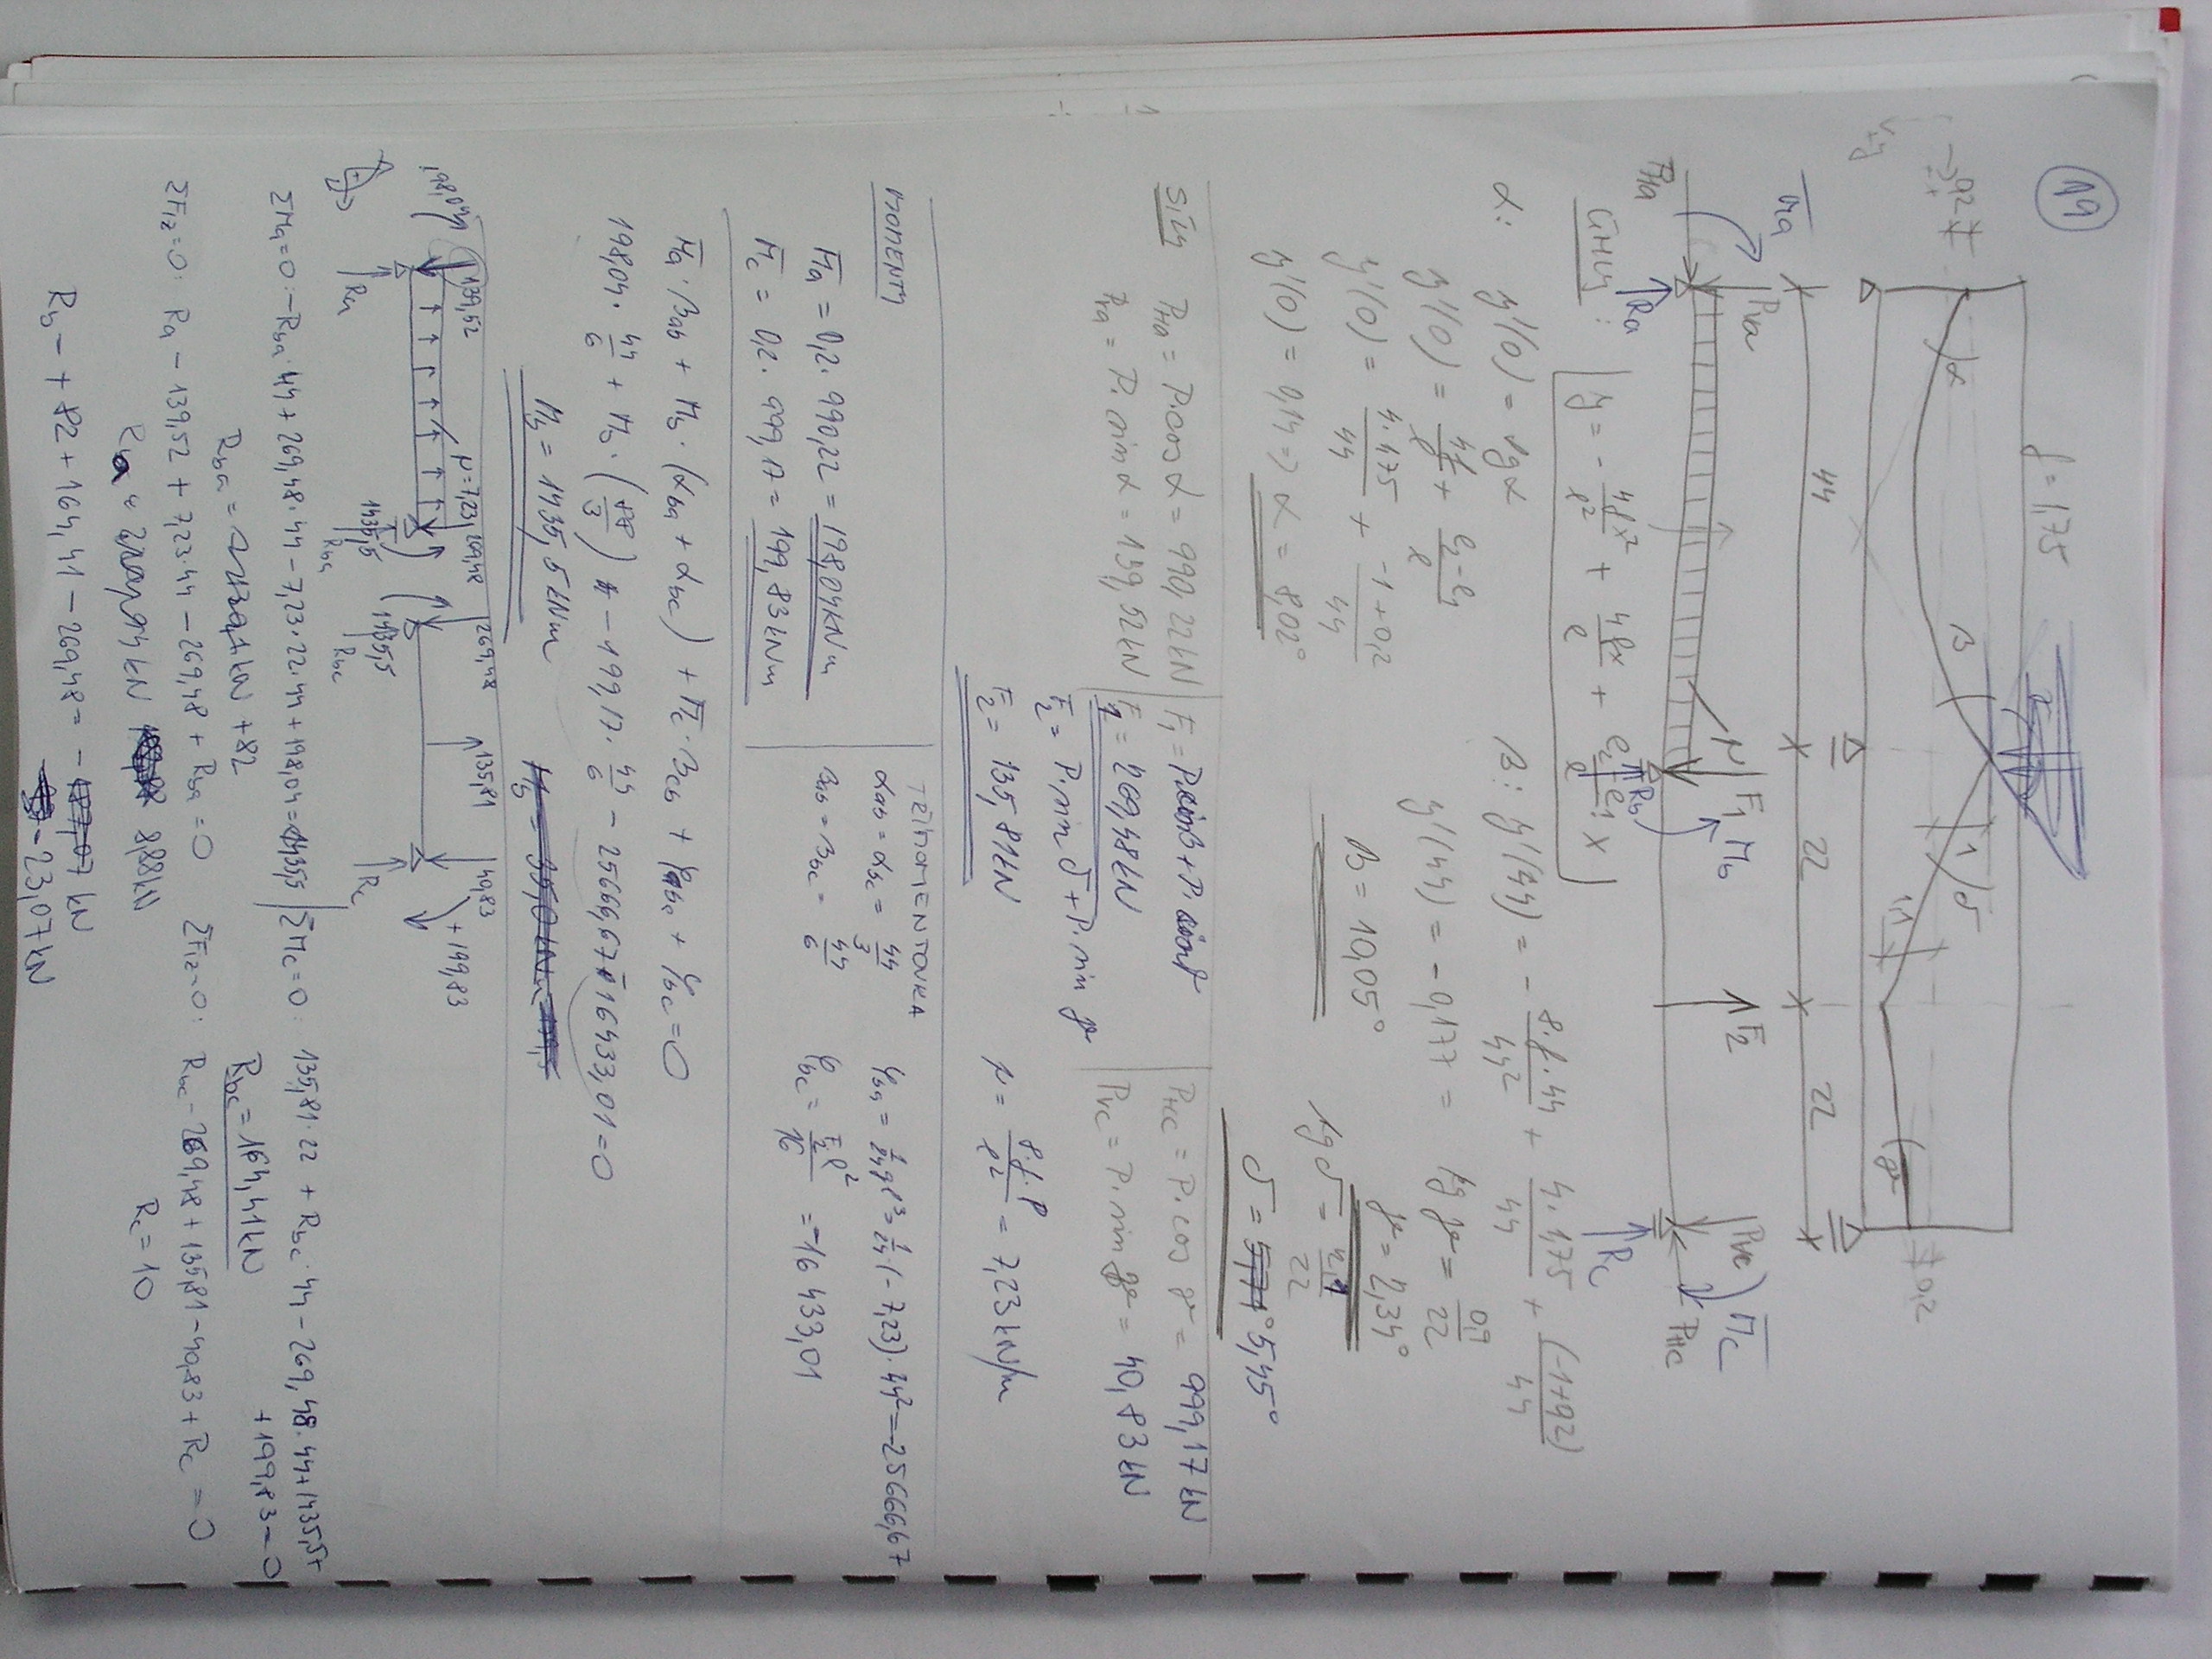 19
f = 1,75
0,2
α
β
δ
1
1,1
γ
0,2
44
22
22
M̄a
PVa
PHa
Ra
p
F1
Mb
Rb
F2
PVc
M̄c
PHc
Rc
ÚHLY:
y = - 4fx²/ℓ² + 4fx/ℓ + e2-e1/ℓ · x
α: y'(0) = tg α
y'(0) = 4f/ℓ + e2-e1/ℓ
y'(0) = 4·1,75/44 + -1+0,2/44
y'(0) = 0,14 => α = 8,02°
β: y'(44) = - 8·f·44/44² + 4·1,75/44 + (-1+0,2)/44
y'(44) = - 0,177 =
β = 10,05°
tg γ = 0,9/22
γ = 2,34°
tg δ = 2,1/22
δ = 5,45°
SÍLY
PHa = P·cos α = 990,22 kN
PVa = P·sin α = 139,52 kN
F1 = P·sin β + P·sin δ
F1 = 269,48 kN
F2 = P·sin δ + P·sin γ
F2 = 135,81 kN
PHc = P·cos γ = 999,17 kN
PVc = P·sin γ = 40,83 kN
p = 8·f·P/ℓ² = 7,23 kN/m
MOMENTY
M̄a = 0,2 · 990,22 = 198,04 kNm
M̄c = 0,2 · 999,17 = 199,83 kNm
TŘÍMOMENTOVKA
αab = αbc = 44/3
βab = βbc = 44/6
φba = 1/24 qℓ³ = 1/24 (-7,23)·44³ = -25666,67
φbc = F2ℓ²/16 = -16 433,01
M̄a · βab + Mb · (αba + αbc) + M̄c · βcb + φba + φbc = 0
198,04 · 44/6 + Mb · (88/3) - 199,17 · 44/6 - 25666,67 - 16433,01 = 0
Mb = 1435,5 kNm
198,04
139,52
p = 7,23
269,48
1435,5
Ra
Rba
269,48
1435,5
Rbc
135,81
40,83
+199,83
Rc
ΣMa = 0: -Rba · 44 + 269,48 · 44 - 7,23 · 22 · 44 + 198,04 = 1435,5
+82
ΣFiz = 0: Ra - 139,52 + 7,23·44 - 269,48 + Rba = 0
ΣMc = 0: 135,81 · 22 + Rbc · 44 - 269,48 · 44 + 1435,5 + 199,83 = 0
Rbc = 164,41 kN
ΣFiz = 0: Rbc - 269,48 + 135,81 - 40,83 + Rc = 0
Rc = 10
Rb - + 82 + 164,41 - 269,48 = -23,07 kN